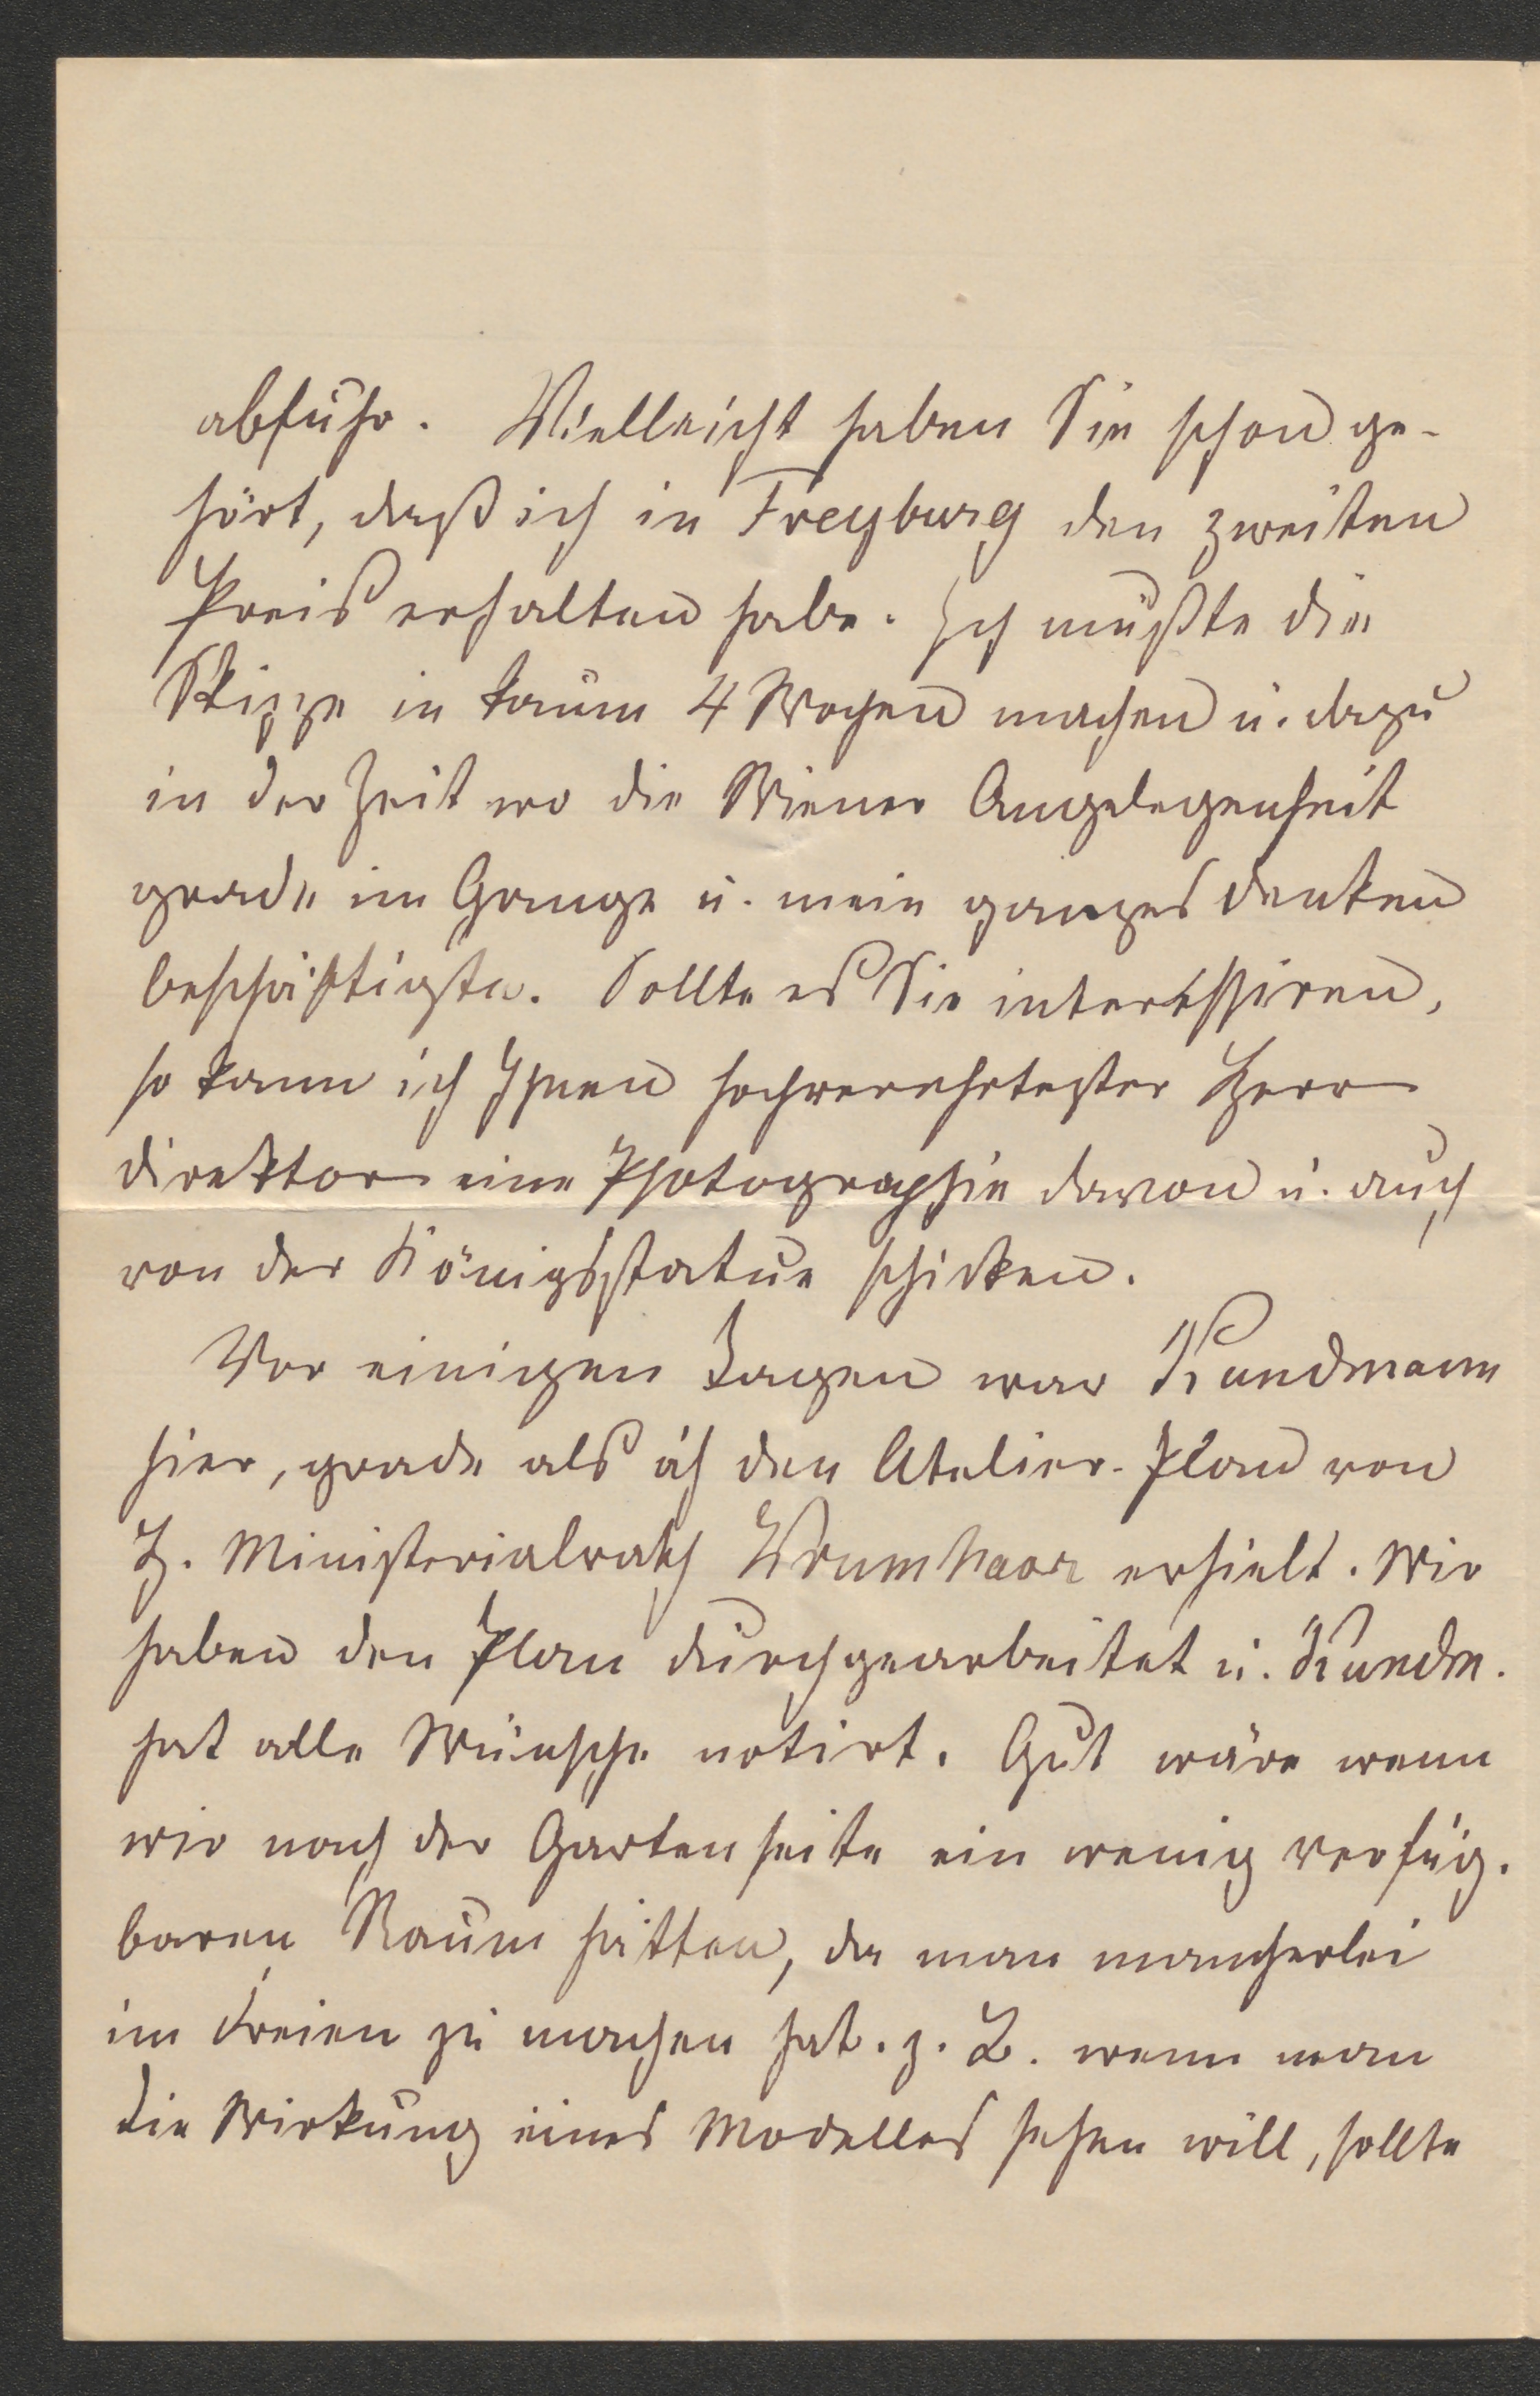 abfuhr. Vielleicht haben Sie schon ge-
hört, daß ich in Freyburg den zweiten
Preis erhalten habe. Ich mußte die
Skizze in kaum 4 Wochen machen u. dazu
in der Zeit wo die Wiener Angelegenheit
grade im Gange u. mein ganzes Denken
beschäftigte. Sollte es Sie interessiren,
so kann ich Ihnen hochverehrtester Herr
Direktor eine Photographie davon u. auch
von der Königsstatue schicken.
Vor einigen Tagen war Kundmann
hier, grade als ich den Atelier-Plan von
H. Ministerialrath erhielt. Wir
haben den Plan durchgearbeitet u. Kundm.
hat alle Wünsche notirt. Gut wäre wenn
wir nach der Gartenseite ein wenig verfüg-
baren Raum hätten, da man mancherlei
im Freien zu machen hat. z. B. wenn man
die Wirkung eines Modelles sehen will, sollte